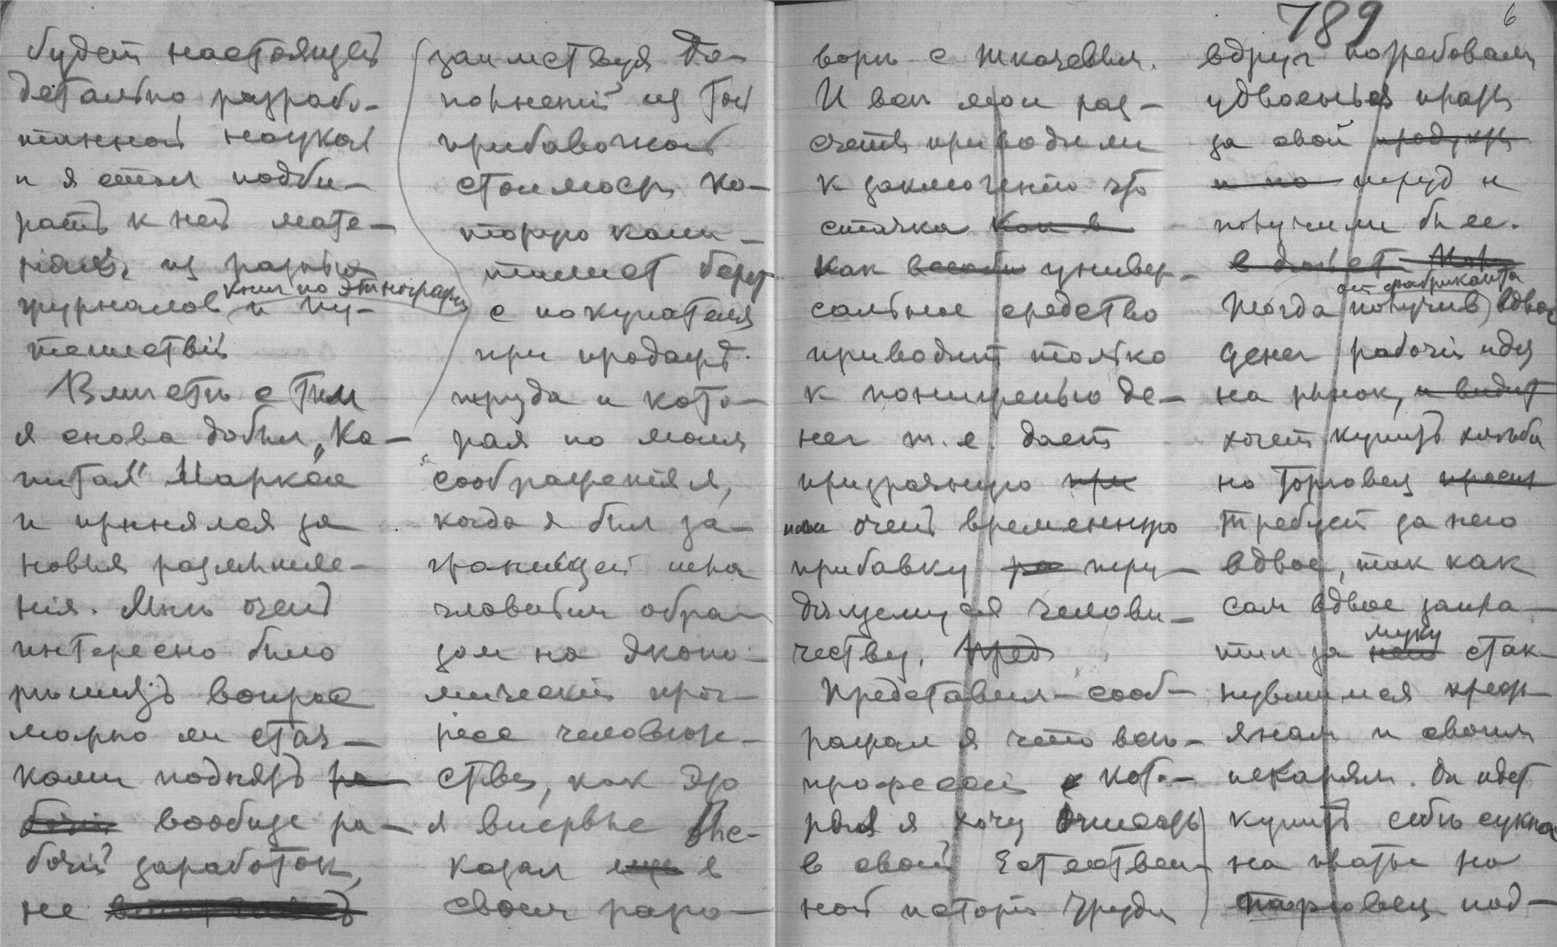 789
6
будет настоящей
детально разрабо-
танной наукой
и я стал подби-
рать к ней мате-
ріалы из разных
журналов книг по этнографіи и пу-
тешествій
Вместе с тем
я снова добыл „Ка-
питал" Маркса
и принялся за
новыя размышле-
нія. Мне очень
интересно было
решить вопрос
можно ли стач-
ками поднять ра-
бочій вообще ра-
бочій заработок,
не
заимствуя до-
полненій из той
прибавочной
стоимости, ко-
торую капи-
талист берет
с покупателя
при продаже
труда и кото-
рая по моим
соображеніям,
когда я был за-
границей шла
главным обра-
зом на эконо-
мическій прог-
ресс человече-
ства, как это
я впервые выс-
казал еще в
своем разго-
воре с Ткачевым.
И все мои раз-
счеты приводили
к заключенію что
стачка как в
как всеобщ универ-
сальное средство
приводит только
к пониженью де-
нег т. е. дает
призрачную при
или очень временную
прибавку ра тру-
дящемуся челове-
честву. Пред
Представим - сооб-
ражал я что все
професіи с кото-
рыя я хочу описать
в своей Естествен-
ной исторіи труда
вдруг потребовали
удвоенья платы
за свой продукт
и по труд и
получили бы ее.
Тогда получив от фабриканта вдвое
денег рабочій идя
на рынок, и видит
хочет купить хлеба
но торговец просит
требует за него
вдвое, так как
сам вдвое запла-
тил за него муку стак-
нувшимся кресть-
янам и своим
пекарям. Он идет
купить себе сукна
на платье но
торговец под-